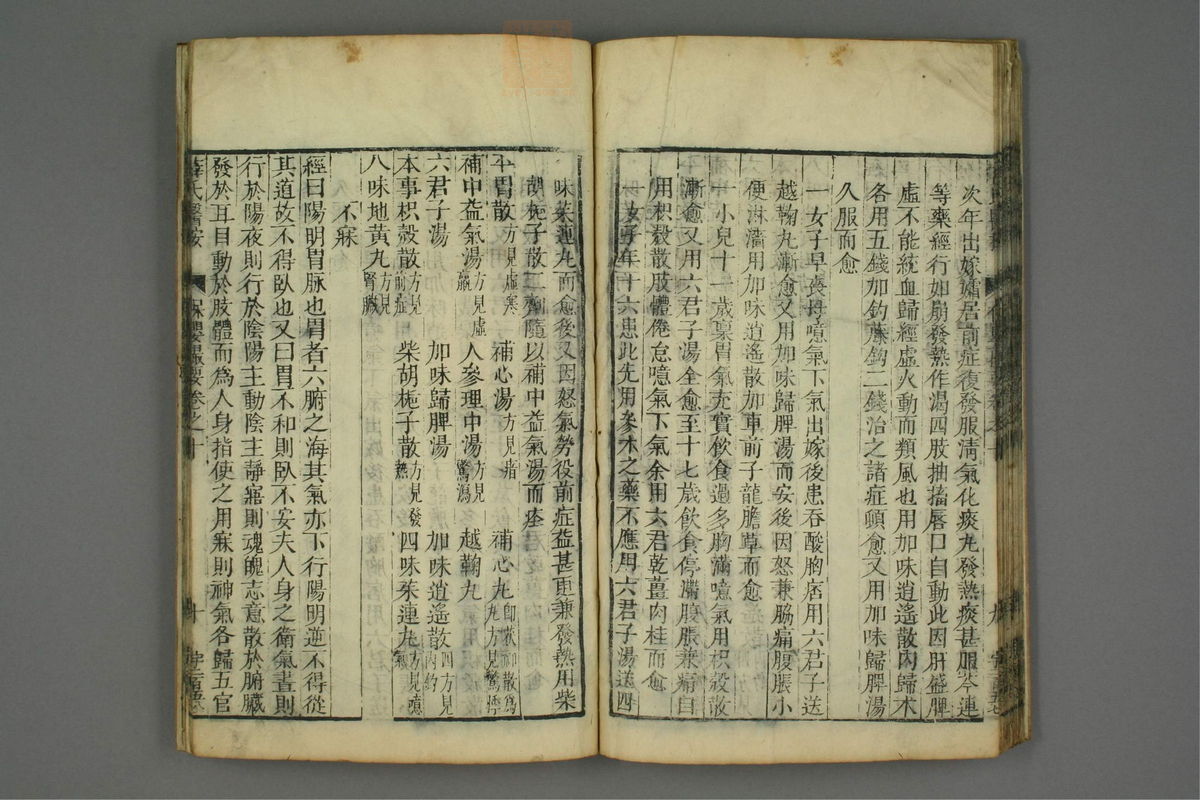 次年出嫁孀居前症復發服清氣化痰丸發熱痰甚服芩連
等藥經行如崩發熱作渴四肢抽搐唇口自動此因肝盛脾
虛不能統血歸經虛火動而類風也用加味逍遙散內歸木
各用五錢加釣藤鈎二錢治之諸症頓愈又用加味歸脾湯
久服而愈
一女子早喪母噫氣下氣出嫁後患吞酸胸痞用六君子送
越鞠丸漸愈又用加味歸脾湯而安後因怒兼脇痛腹脹小
便淋濇用加味逍遙散加車前子龍膽草而愈
一小兒十一歲稟胃氣充實飲食過多胸滿噫氣用枳殼散
漸愈又用六君子湯全愈至十七歲飲食停滯腹脹兼痛自
用枳殼散肢體倦怠噫氣下氣余用六君乾薑肉桂而愈
一女子年十六患此先用參术之藥不應用六君子湯送四
味茱連丸而愈後又因怒氣勞役前症益甚更兼發熱用柴
胡梔子散二劑隨以補中益氣湯而痊
平胃散方見虛寒 補心湯方見瘖 補心丸即茯神散為丸方見驚悸
補中益氣湯方見虛羸 人參理中湯方見驚瀉 越鞠丸
六君子湯 加味歸脾湯 加味逍遙散四方見內釣
本事枳殼散方見前症 柴胡梔子散方見發熱 四味茱連丸方見噫氣
八味地黃丸方見腎臟
不寐
經曰陽明胃脉也胃者六腑之海其氣亦下行陽明逆不得從
其道故不得臥也又曰胃不和則臥不安夫人身之衛氣晝則
行於陽夜則行於陰陽主動陰主靜寤則魂魄志意散於腑臟
發於耳目動於肢體而為人身指使之用寐則神氣各歸五官
薛氏醫按 保嬰撮要卷之十 十